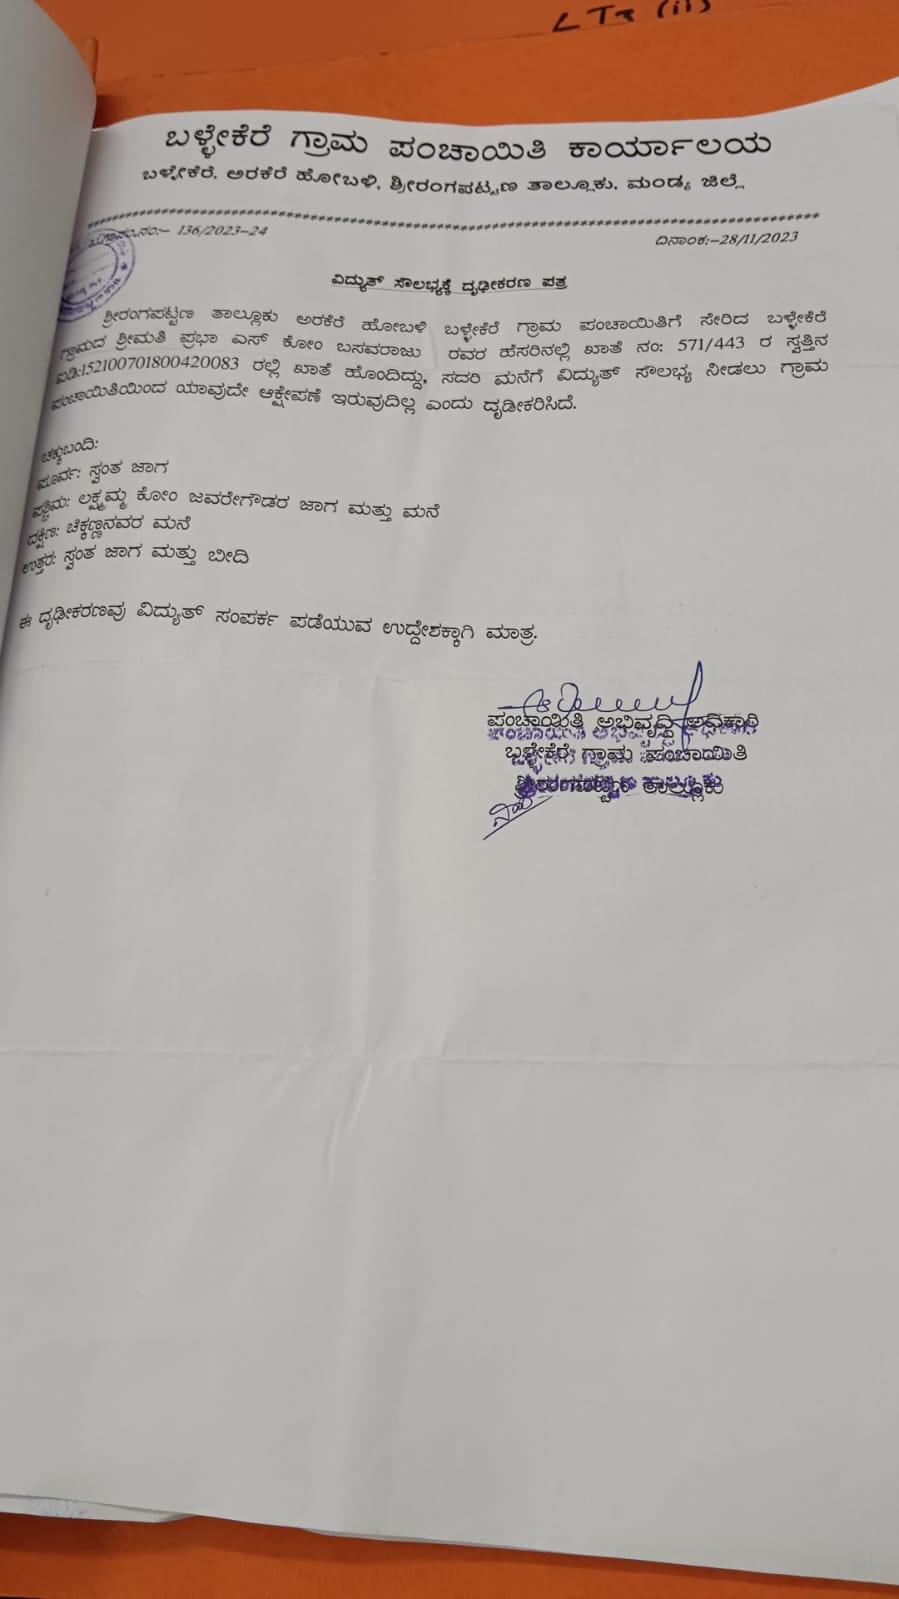 LT3 (ii)
ಬಳ್ಳೇಕೆರೆ ಗ್ರಾಮ ಪಂಚಾಯಿತಿ ಕಾರ್ಯಾಲಯ
ಬಳ್ಳೇಕೆರೆ, ಅರಕೆರೆ ಹೋಬಳಿ, ಶ್ರೀರಂಗಪಟ್ಟಣ ತಾಲ್ಲೂಕು, ಮಂಡ್ಯ ಜಿಲ್ಲೆ
ನಂ:- 136/2023-24 ದಿನಾಂಕ:-28/11/2023
ವಿದ್ಯುತ್ ಸೌಲಭ್ಯಕ್ಕೆ ದೃಢೀಕರಣ ಪತ್ರ
ಶ್ರೀರಂಗಪಟ್ಟಣ ತಾಲ್ಲೂಕು ಅರಕೆರೆ ಹೋಬಳಿ ಬಳ್ಳೇಕೆರೆ ಗ್ರಾಮ ಪಂಚಾಯಿತಿಗೆ ಸೇರಿದ ಬಳ್ಳೇಕೆರೆ
ಗ್ರಾಮದ ಶ್ರೀಮತಿ ಪ್ರಭಾ ಎಸ್ ಕೋಂ ಬಸವರಾಜು ರವರ ಹೆಸರಿನಲ್ಲಿ ಖಾತೆ ನಂ: 571/443 ರ ಸ್ವತ್ತಿನ
ಐಡಿ:152100701800420083 ರಲ್ಲಿ ಖಾತೆ ಹೊಂದಿದ್ದು, ಸದರಿ ಮನೆಗೆ ವಿದ್ಯುತ್ ಸೌಲಭ್ಯ ನೀಡಲು ಗ್ರಾಮ
ಪಂಚಾಯಿತಿಯಿಂದ ಯಾವುದೇ ಆಕ್ಷೇಪಣೆ ಇರುವುದಿಲ್ಲ ಎಂದು ದೃಡೀಕರಿಸಿದೆ.
ಚಕ್ಕುಬಂದಿ:
ಪೂರ್ವ: ಸ್ವಂತ ಜಾಗ
ಪಶ್ಚಿಮ: ಲಕ್ಷ್ಮಮ್ಮ ಕೋಂ ಜವರೇಗೌಡರ ಜಾಗ ಮತ್ತು ಮನೆ
ದಕ್ಷಿಣ: ಚಿಕ್ಕಣ್ಣನವರ ಮನೆ
ಉತ್ತರ: ಸ್ವಂತ ಜಾಗ ಮತ್ತು ಬೀದಿ
ಈ ದೃಢೀಕರಣವು ವಿದ್ಯುತ್ ಸಂಪರ್ಕ ಪಡೆಯುವ ಉದ್ದೇಶಕ್ಕಾಗಿ ಮಾತ್ರ.
ಪಂಚಾಯಿತಿ ಅಭಿವೃದ್ಧಿ ಅಧಿಕಾರಿ
ಬಳ್ಳೇಕೆರೆ ಗ್ರಾಮ ಪಂಚಾಯಿತಿ
ಶ್ರೀರಂಗಪಟ್ಟಣ ತಾಲ್ಲೂಕು